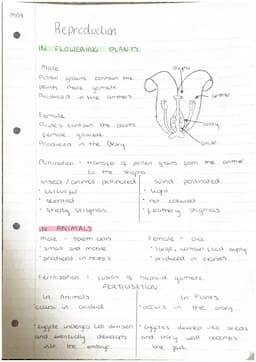 MO8
Reproduction
IN FLOWERING PLANTS
Male
Pollen grains contain the
plants male gamete
Produced in the anthers
stigma
anther
ovary
ovule
Female
Ovules contain the plants
female gamete
Produced in the Ovary
Pollination - transfer of pollen grains from the anther
to the stigma
Insect/animal pollinated
• colourful
• scented
• sticky stigmas
wind pollinated
• light
• not coloured
• feathery stigmas
IN ANIMALS
Male - sperm cells
• small and motile
• produced in testes
Female - Ova
• large, contain food supply
• produced in ovaries
Fertilisation : fusion of haploid gametes
FERTILISATION
In Animals
• occurs in oviduct
• zygote undergoes cell division
and eventually develops
into the embryo
In Plants
• occurs in the ovary
• zygotes develop into seeds
and ovary wall becomes
the fruit